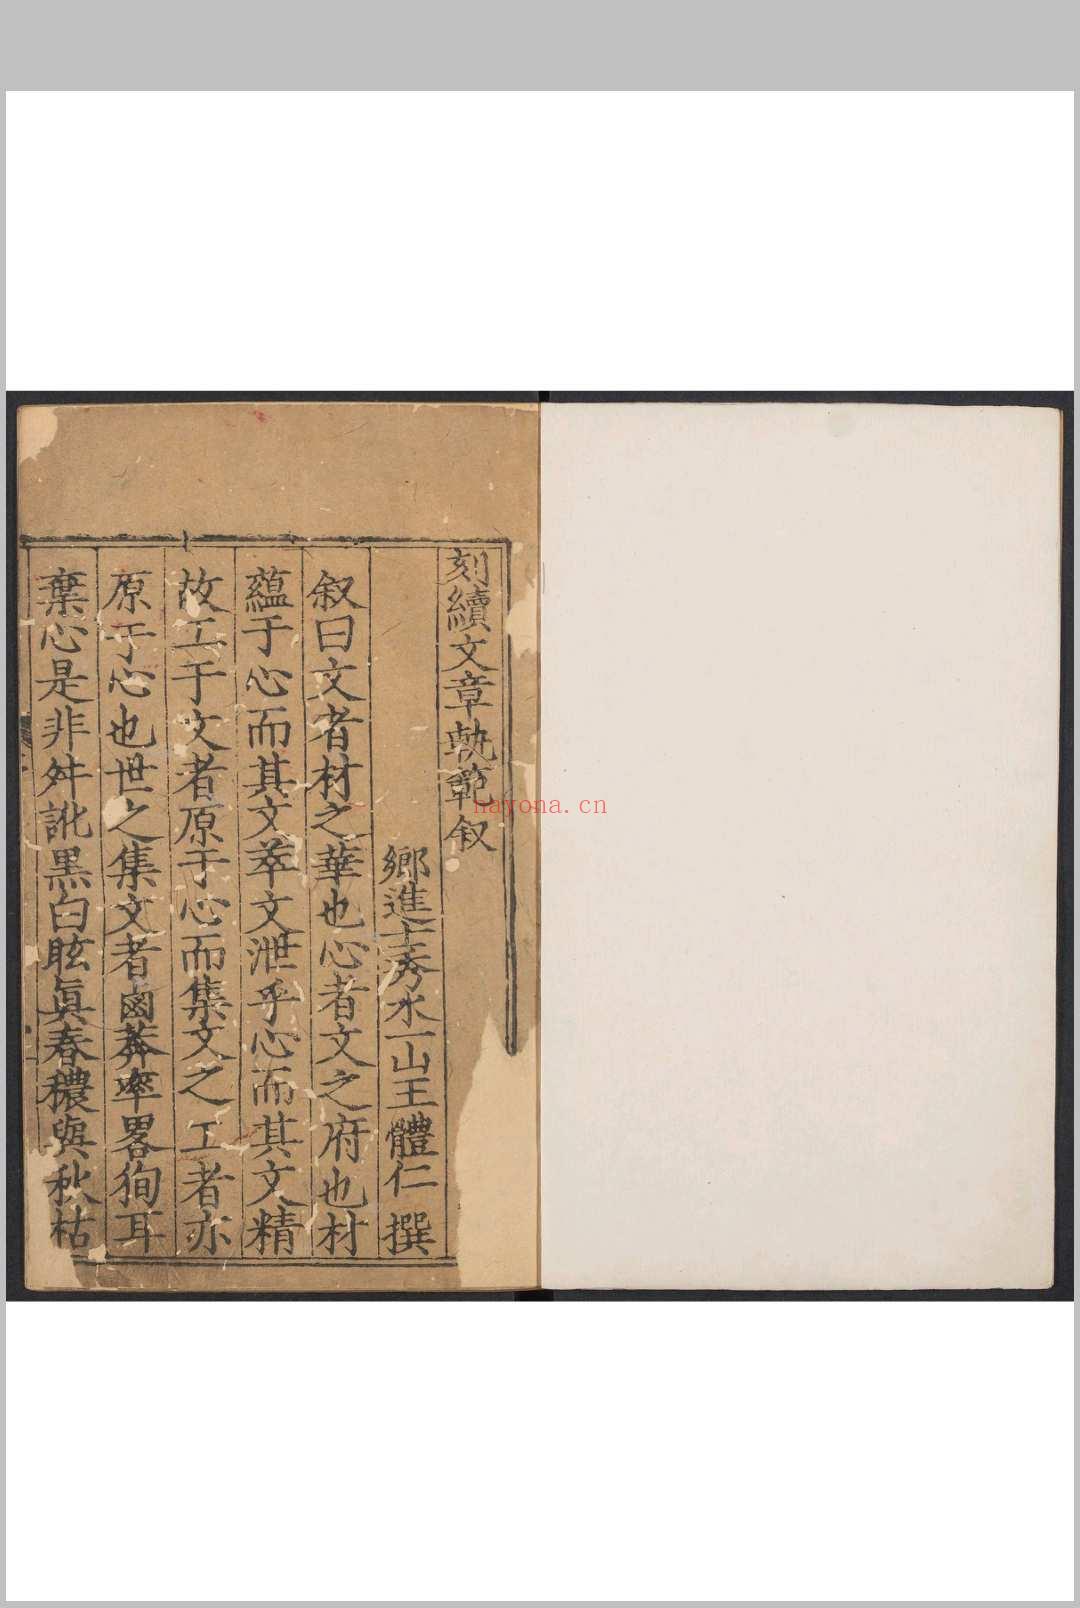 刻續文章軌範叙
鄉進士秀水一山王體仁撰
叙曰文者材之華也心者文之府也材
蘊于心而其文萃文泄乎心而其文精
故工于文者原于心而集文之工者亦
原于心也世之集文者鹵莽率畧徇耳
棄心是非舛訛黑白眩眞春穠與秋枯
nayona.cn